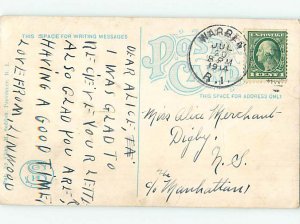 THIS SPACE FOR WRITING MESSAGES
Post Card
THIS SPACE FOR ADDRESS ONLY
WARREN
JUL
8 PM
1914
R.I.
1 CENT 1
DEAR ALICE,
I WAS GLAD TO
ALSO GLAD YOU ARE
HAVING A GOOD TIME,
LOVE FROM LINWOOD
Miss Alice Merchant
Digby.
N.S.
c/o Manhattan